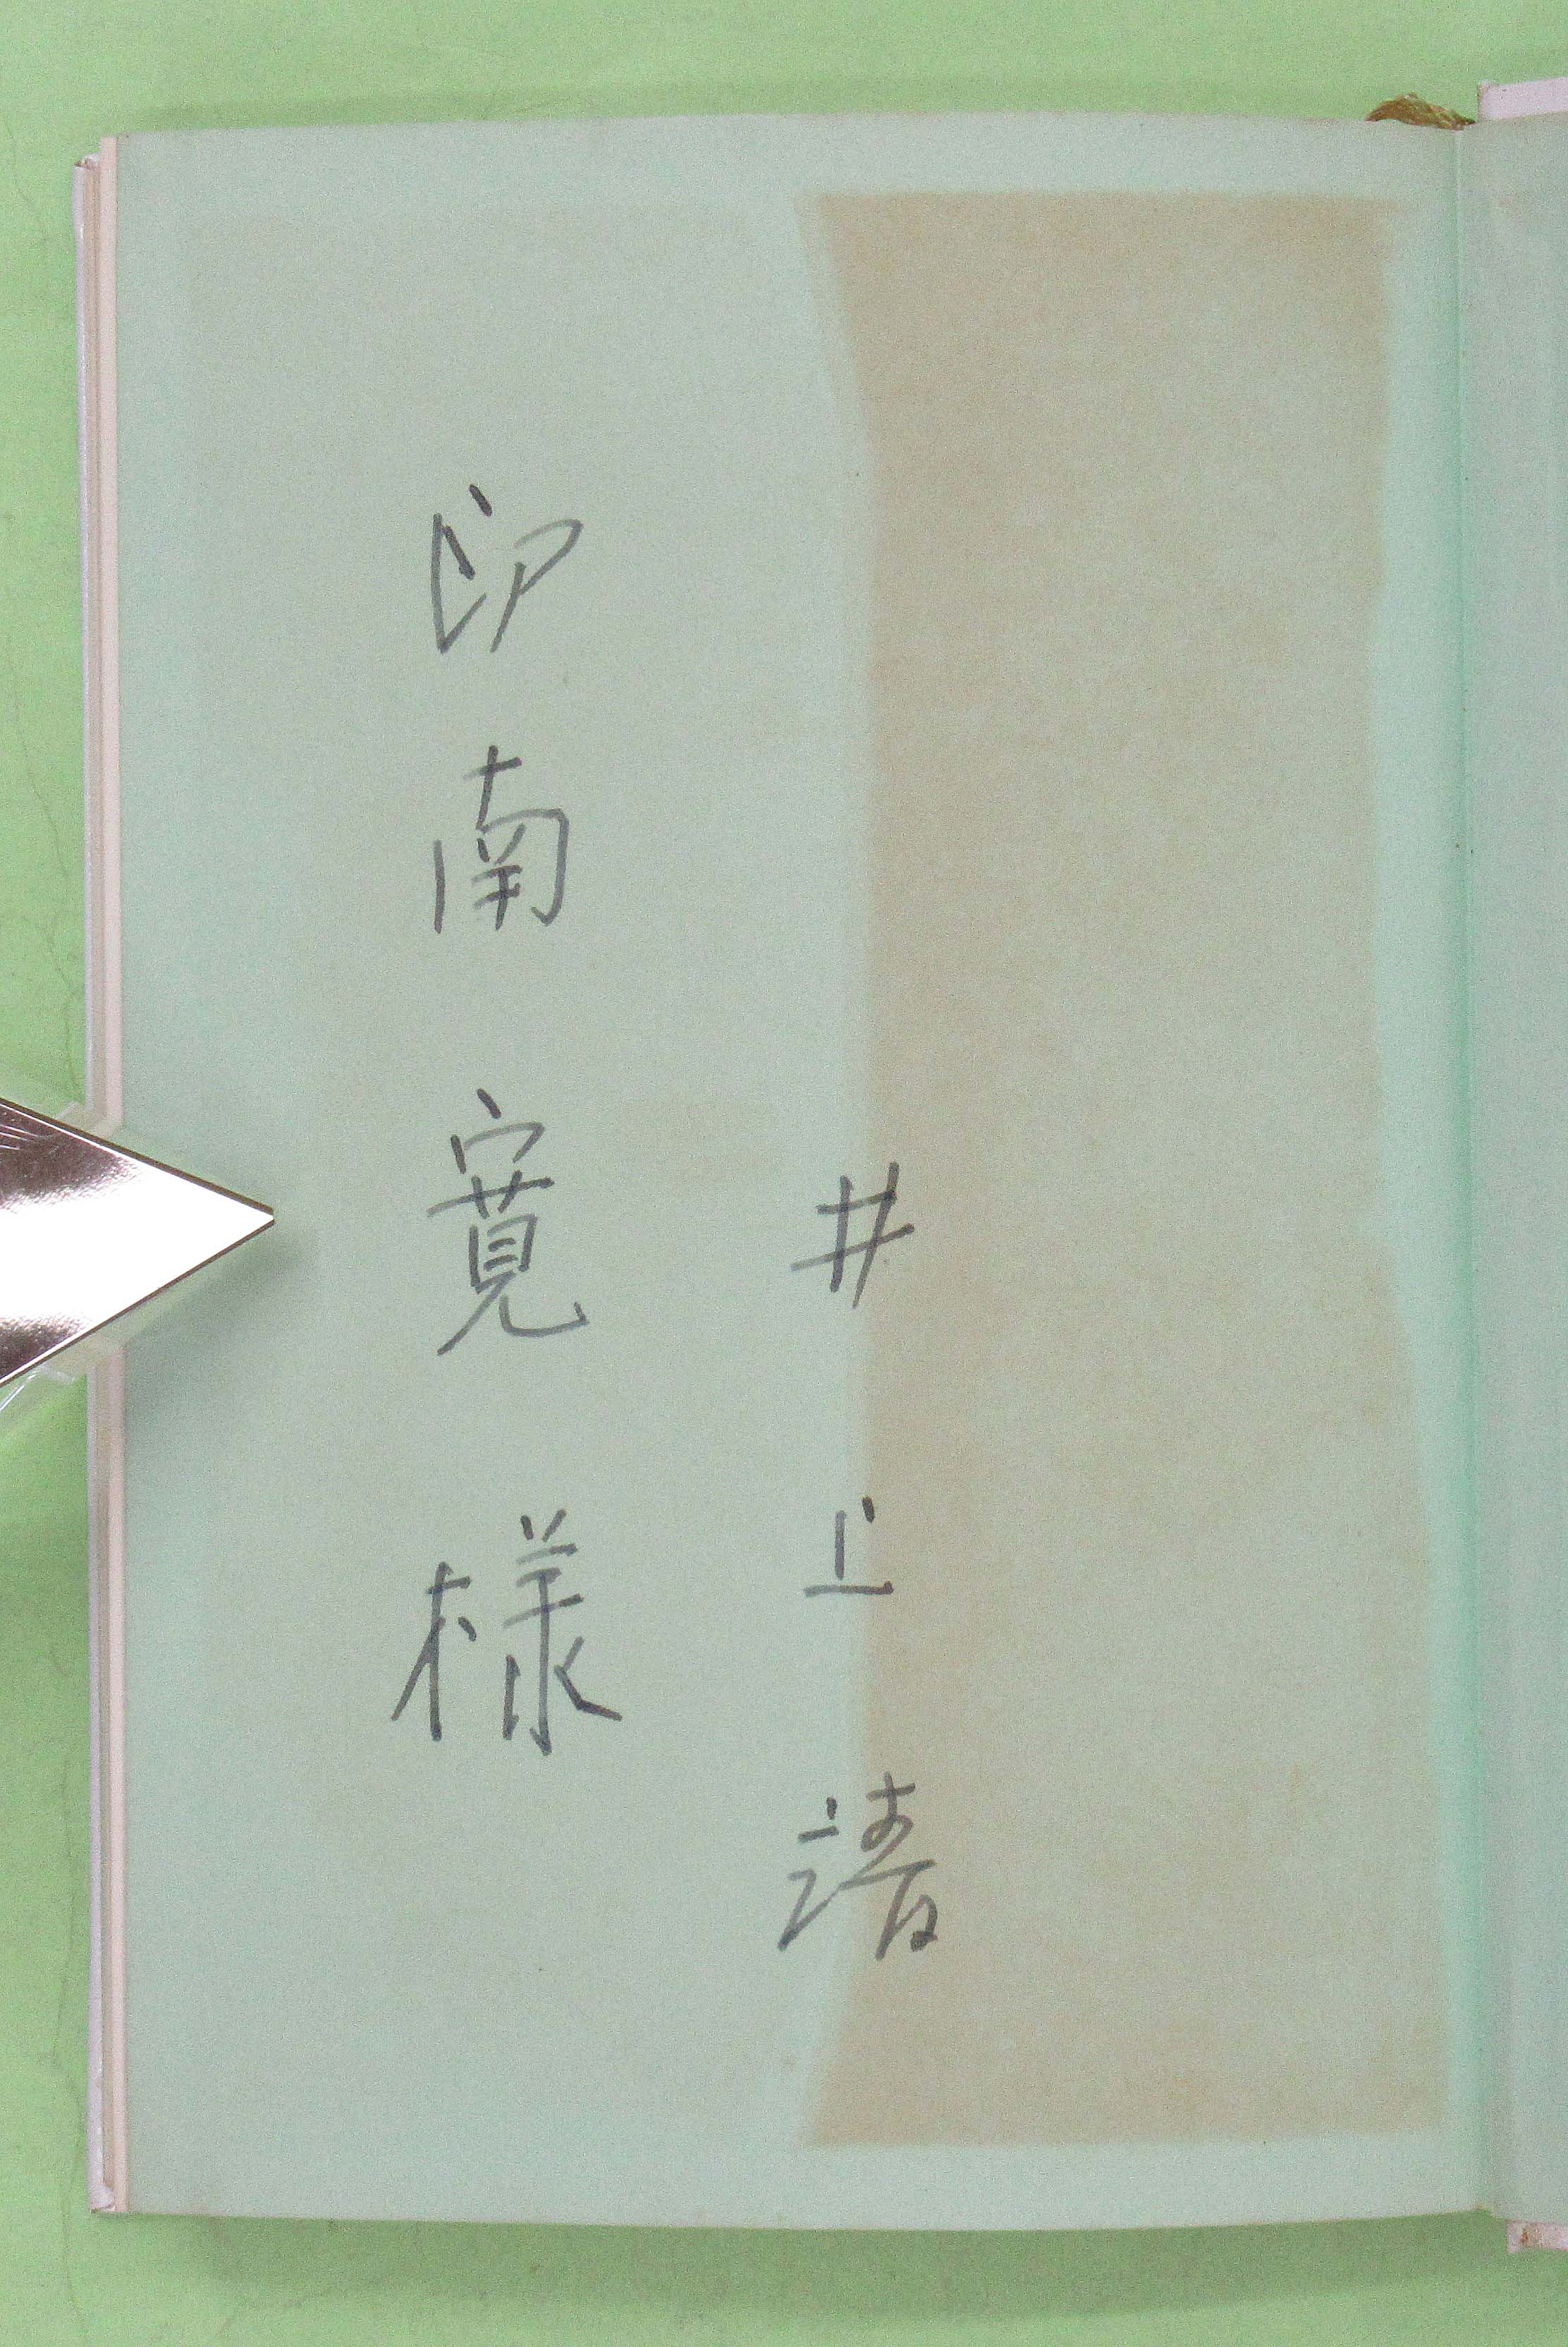 井上靖
印南寛様